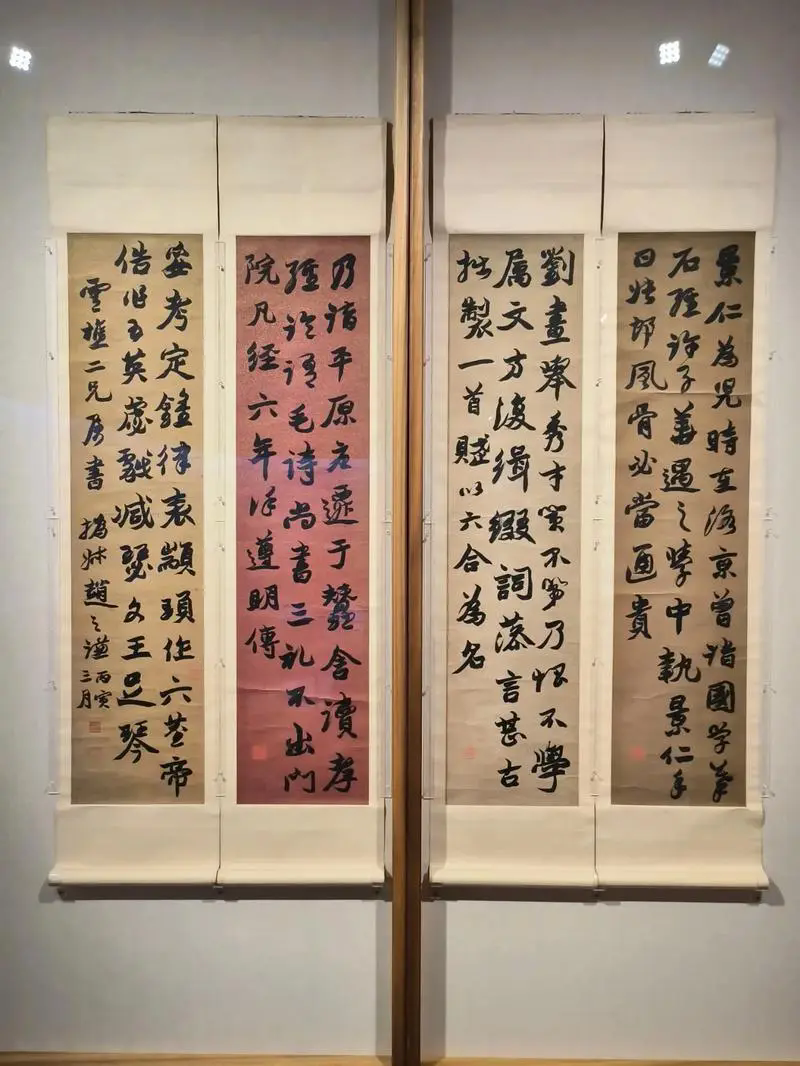 景仁為兒時在洛京曾詣國學摹
石經許子善遇之學中執景仁手
曰張郎風骨必當通貴
劉晝舉秀才策不第乃恨不學
屬文方復緝綴詞藻言甚古
拙製一首賦以六合為名
乃詣平原唐遷于蠶舍讀孝
經論語毛詩尚書三礼不出門
院凡經六年徐遵明傳
安考定鐘律表顓頊作六莖帝
俈作五英虙戲減瑟文王足琴
雲樵二兄屬書 撝叔趙之謙
丙寅
三月